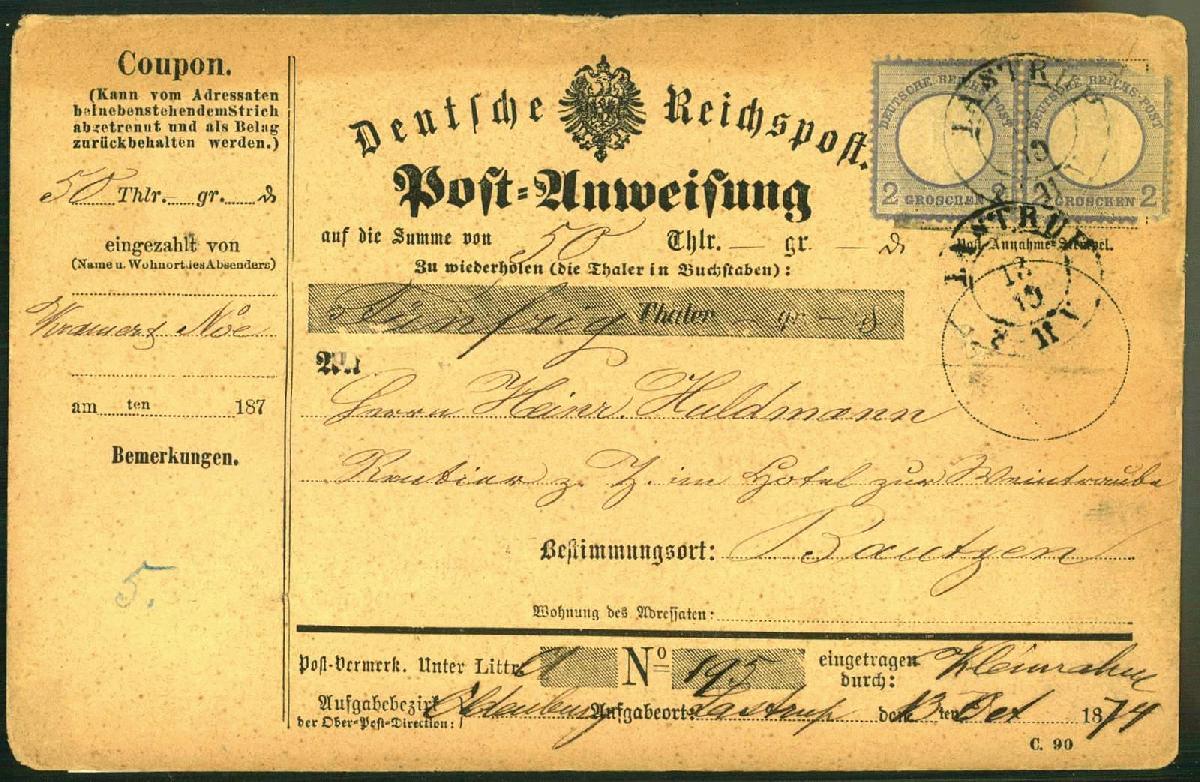 Coupon.
(Kann vom Adressaten
beinebenstehendem Strich
abgetrennt und als Belag
zurückbehalten werden.)
50 Thlr. — gr. — ₰
eingezahlt von
(Name u. Wohnort des Absenders)
Noe
am ten 187
Bemerkungen.
5.
Deutsche Reichspost.
Post-Anweisung
auf die Summe von 50 Thlr. — gr. — ₰
Zu wiederholen (die Thaler in Buchstaben):
Fünfzig Thaler — gr. — ₰
An
Herrn Heinr. Huldmann
Rentier z. Z. im Hotel zur Weintraube
Bestimmungsort: Bautzen
Wohnung des Adressaten:
Post-Vermerk. Unter Littr. A No 195 eingetragen durch:
Aufgabebezirk der Ober-Post-Direction: Oldenburg Aufgabeort: Lastrup den 13ten Oct 1874
C. 90
DEUTSCHE REICHS-POST
2 GROSCHEN
DEUTSCHE REICHS-POST
GROSCHEN 2
LASTRUP
Post-Annahme-Stempel.
LASTRUP